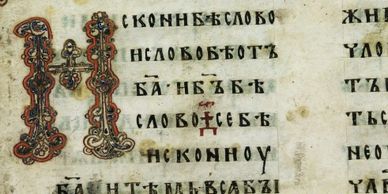 И
скони бѣ слово
и слово бѣ отъ
ба҃ и бъ҃ бѣ
слово се бѣ
искони оу
ба҃ и тѣмь вса бы
жи
ч ло
тъ
тьс
не о